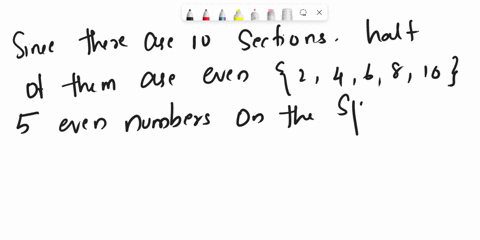 Since there are 10 Sections. half
of them are even {2, 4, 6, 8, 10}
5 even numbers on the Sp